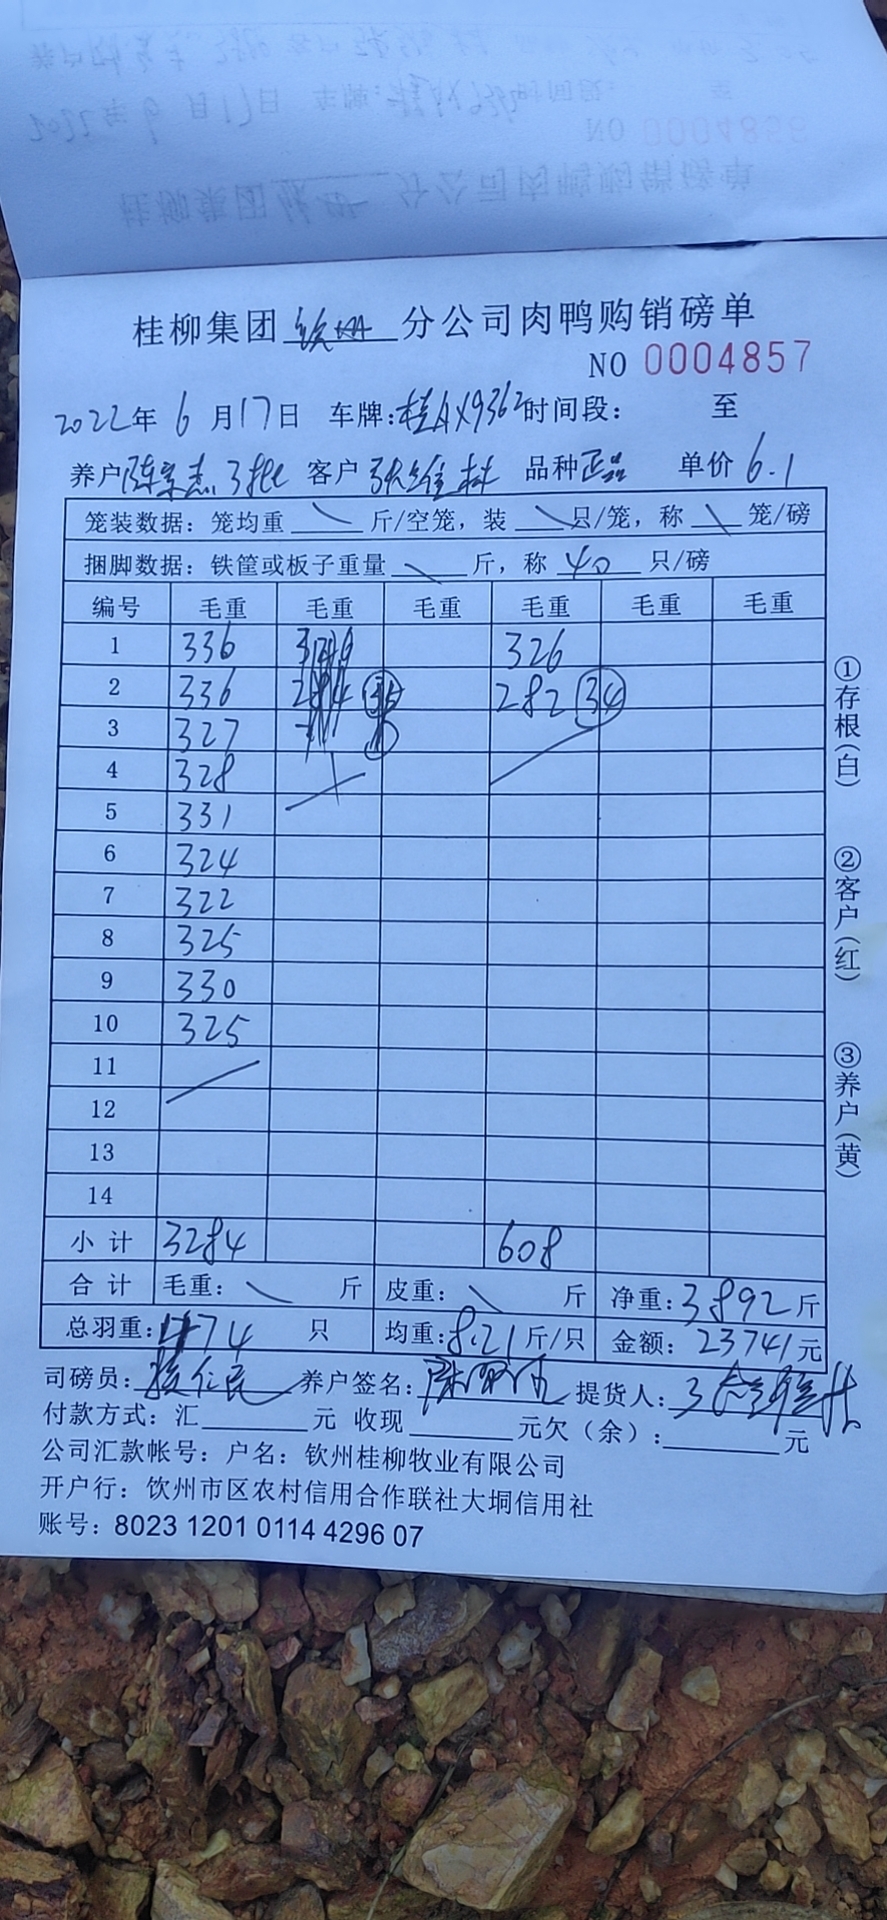 桂柳集团 分公司肉鸭购销磅单
NO 0004857
2022年 6 月17日 车牌:桂AX9362时间段: 至
养户 客户 品种正品 单价 6.1
笼装数据:笼均重 斤/空笼,装 只/笼,称 笼/磅
捆脚数据:铁筐或板子重量 斤,称 40 只/磅
编号 毛重 毛重 毛重 毛重 毛重 毛重
1 336 326
2 336 284 282 34
3 327
4 328
5 331
6 324
7 322
8 325
9 330
10 325
11
12
13
14
小 计 3284 608
合 计 毛重: 斤 皮重: 斤 净重:3892斤
总羽重: 474 只 均重:8.21斤/只 金额:23741元
司磅员: 养户签名: 提货人:
付款方式:汇 元 收现 元欠(余): 元
公司汇款帐号:户名:钦州桂柳牧业有限公司
开户行:钦州市区农村信用合作联社大垌信用社
账号:8023 1201 0114 4296 07
①存根(白)
②客户(红)
③养户(黄)